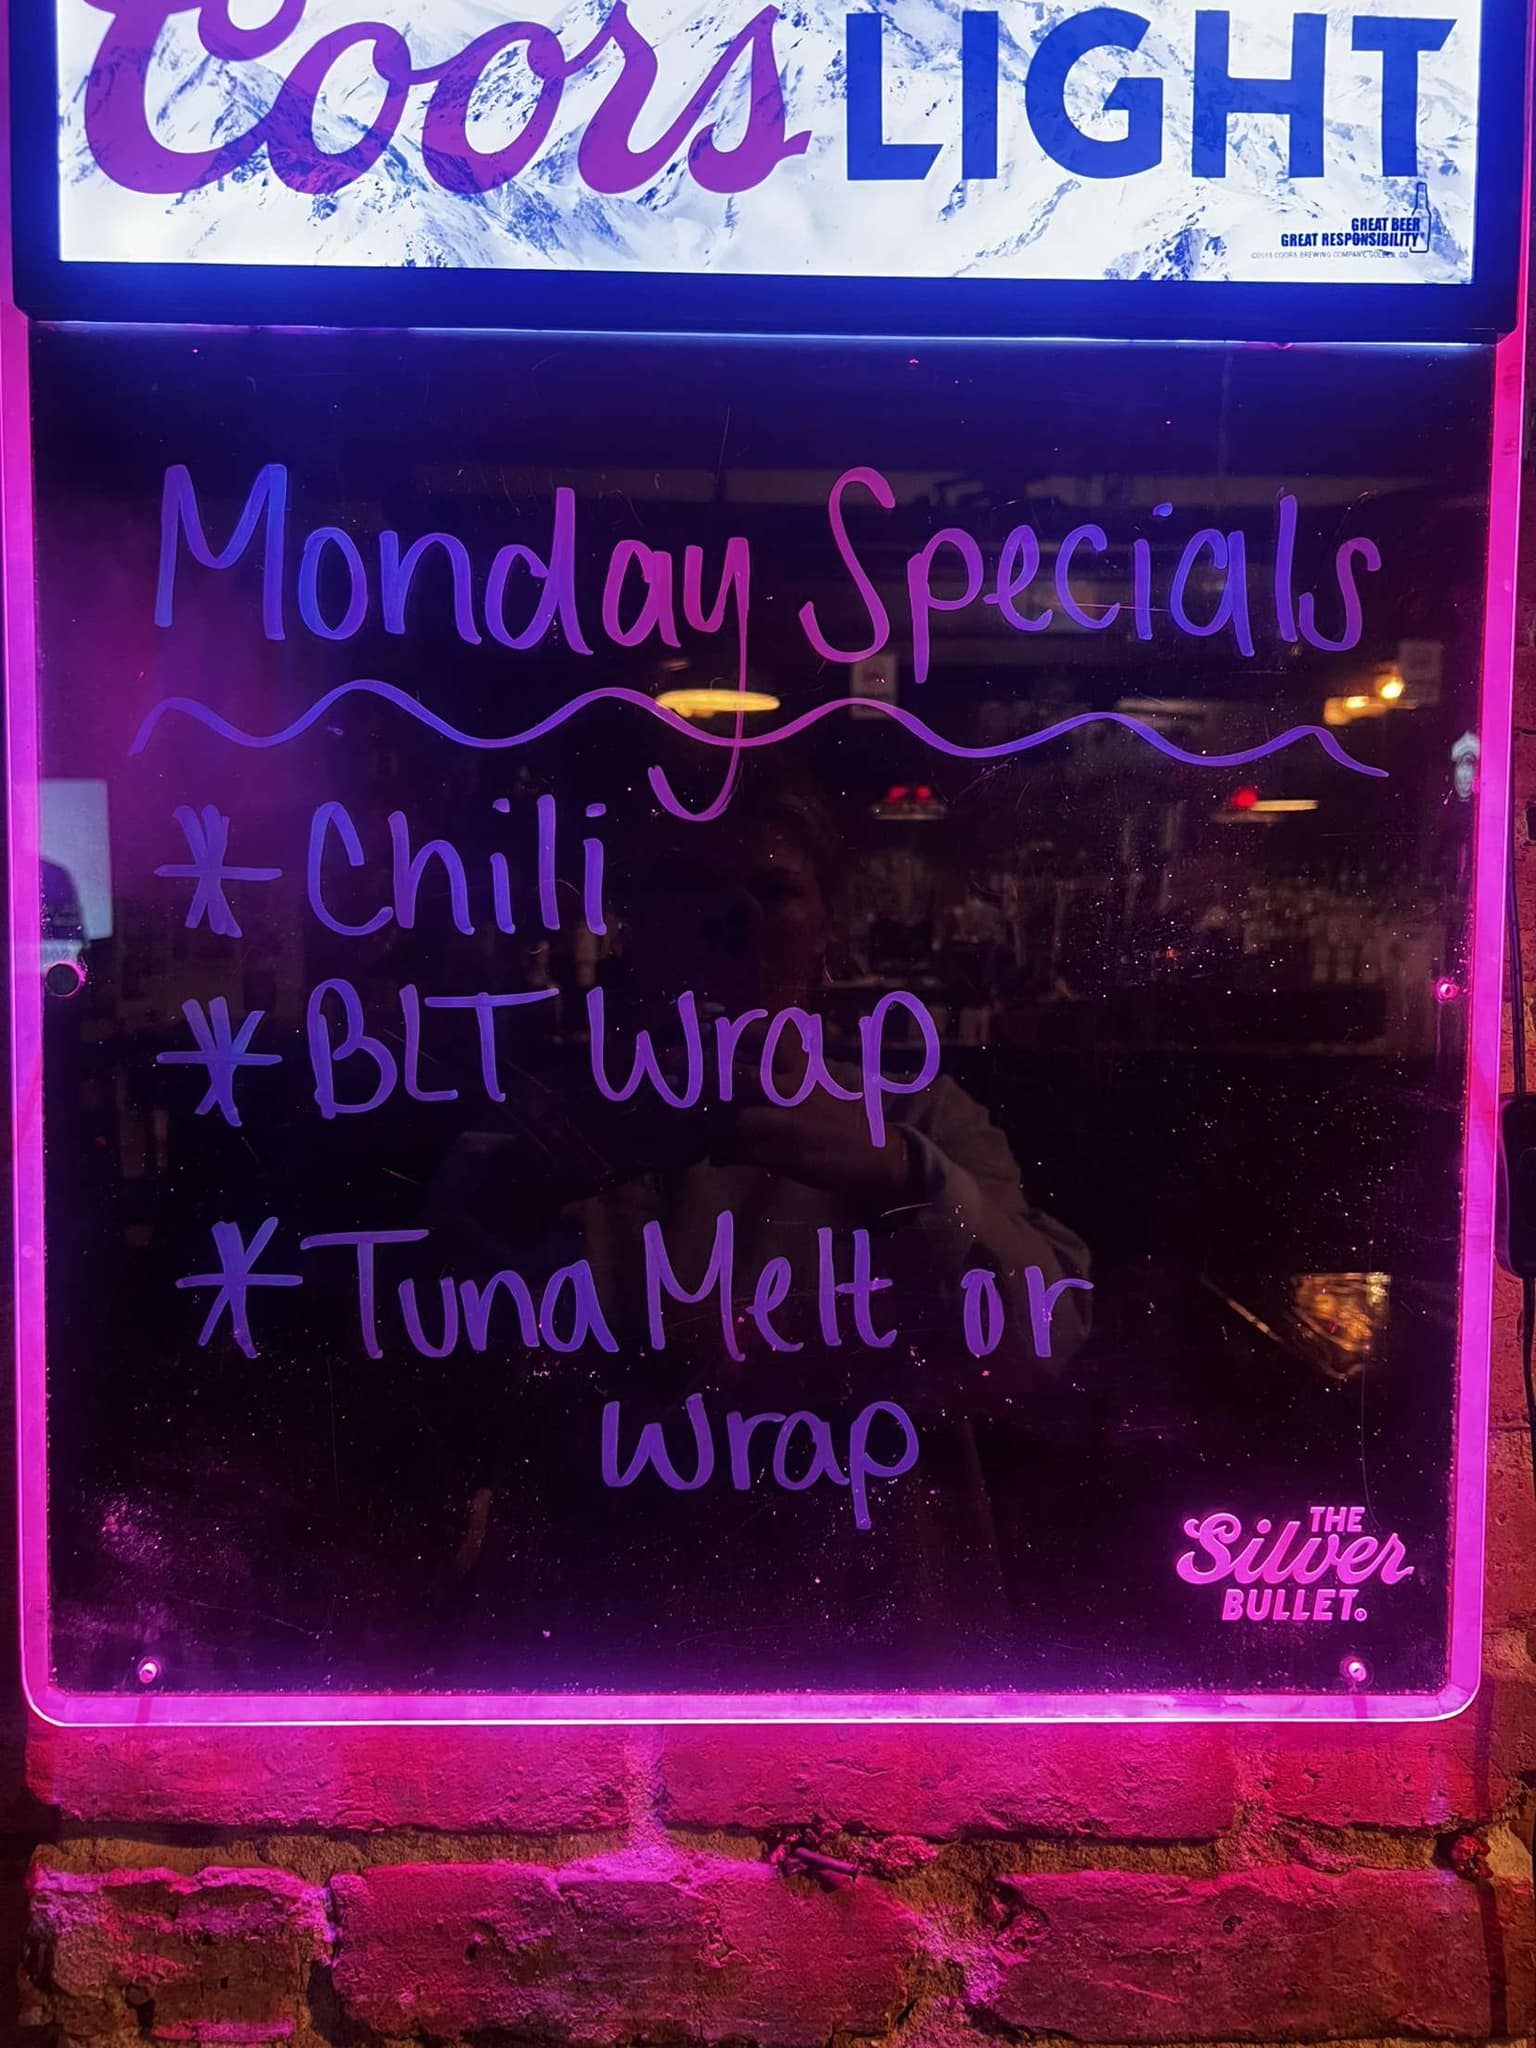 Coors LIGHT
GREAT BEER
GREAT RESPONSIBILITY
©2015 COORS BREWING COMPANY, GOLDEN, CO
Monday Specials
* Chili
* BLT Wrap
* Tuna Melt or
Wrap
THE
Silver
BULLET®